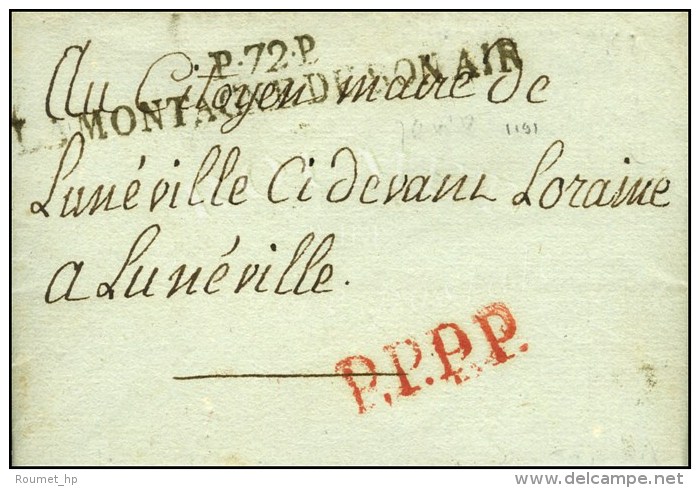 P.72.P
LA MONTAGNE DU BON AIR
Au Citoyen maire de
Lunéville Ci devant Loraine
a Lunéville.
P.P.P.P.
Roumet_hp
delcampe.net